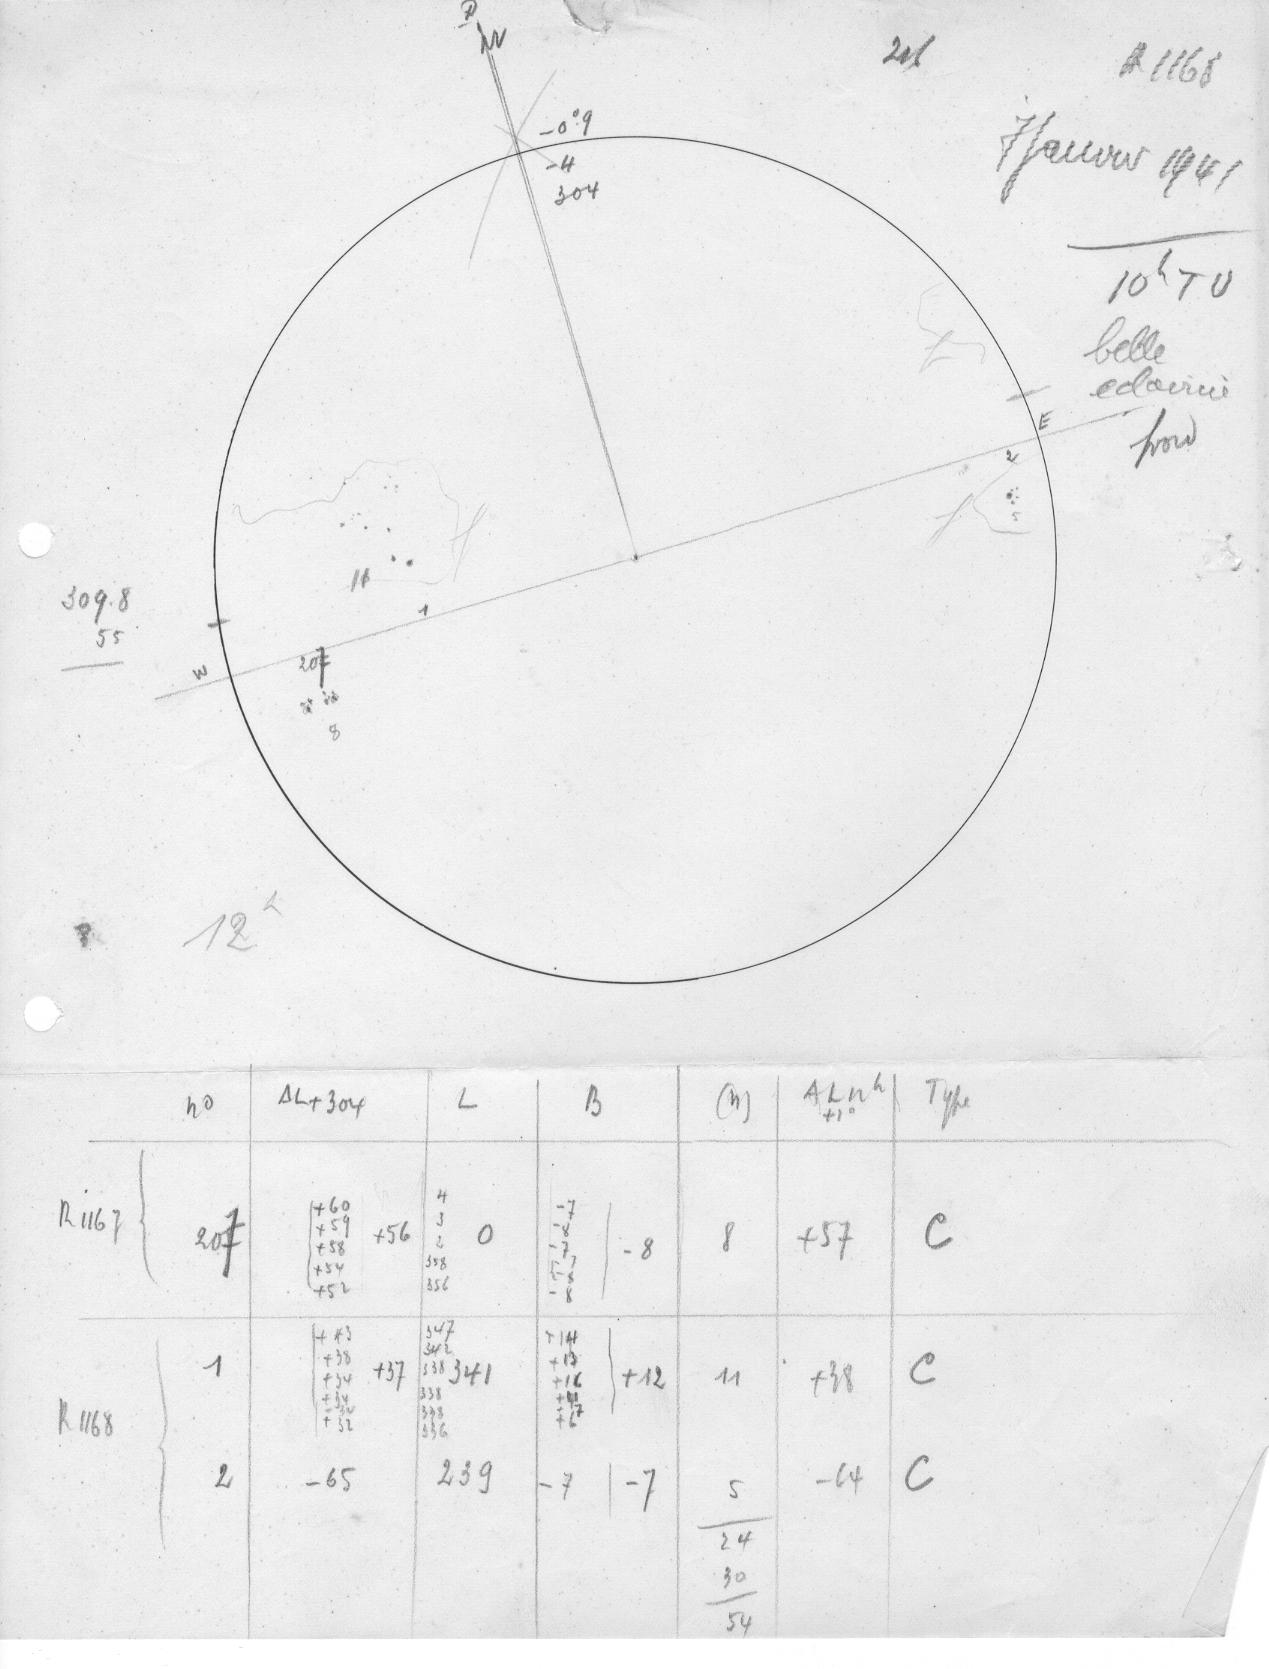 P
N
R 1168
7 Janvier 1941
-0°.9
-4
304
10h TU
belle
eclaircie
froid
E
2
5
11
309.8
55
1
W
207
8
12h
n° ΔL+304 L B (n) ΔL 12h +1° Type
R 1167 207 +60 +59 +58 +54 +52 +56 4 3 2 358 356 0 -7 -8 -7 -7 -8 -8 -8 8 +57 C
R 1168 1 +43 +38 +34 +34 +34 +32 +37 347 342 338 338 338 336 341 +14 +13 +16 +11 +17 +6 +12 11 +38 C
2 -65 239 -7 -7 5 -64 C
24
30
54